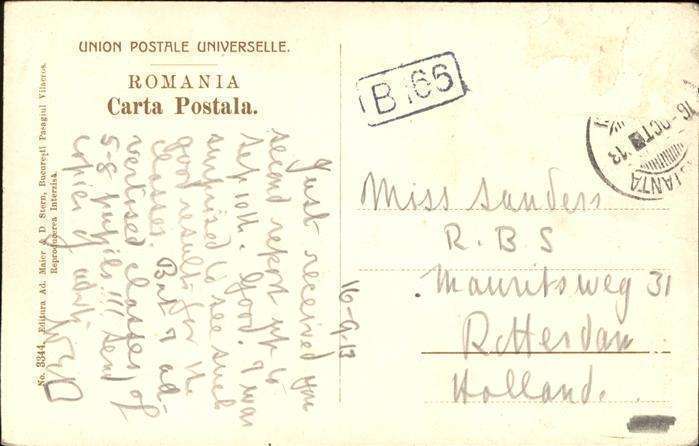 UNION POSTALE UNIVERSELLE.
ROMANIA
Carta Postala.
No. 3344. Editura Ad. Maier & D. Stern, Bucureşti Pasagiul Vilacros.
Reproducerea Interzisă.
B 166
16 OCT 13
Miss Sanders
R. B S
Mauritsweg 31
Rotterdam
Holland.
16-9-13
Just received your
second report up to
Sep 10th. Good. I was
surprised to see such
good results for the
classes. But I ad-
vertised classes of
5-8 pupils!!! Send
copies of